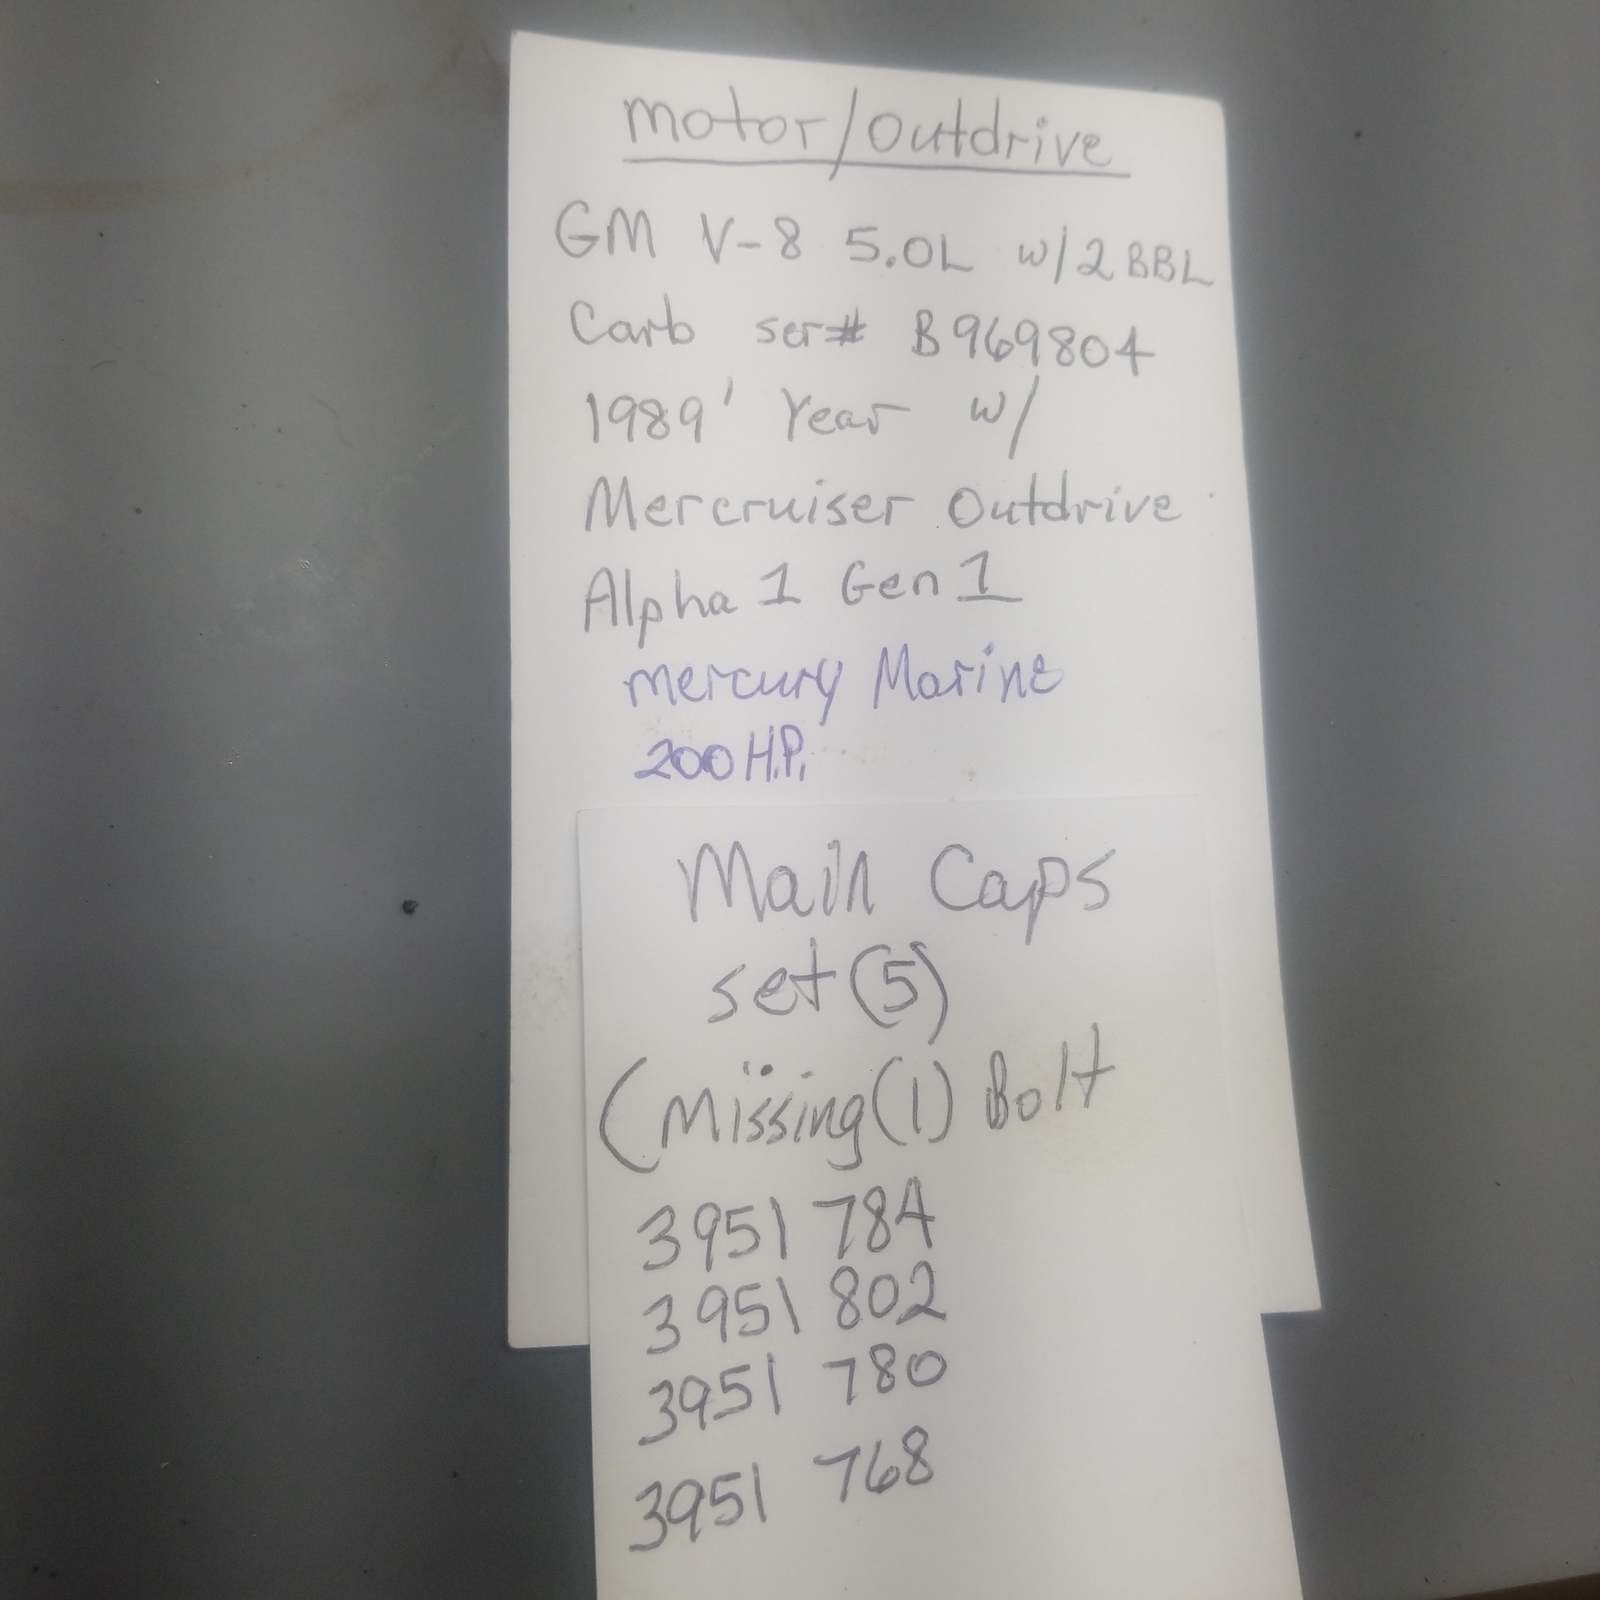 motor/outdrive
GM V-8 5.0L w/2BBL
Carb ser# B969804
1989' Year w/
Mercruiser Outdrive
Alpha 1 Gen 1
mercury Marine
200 H.P.
Main Caps
set (5)
(Missing (1) Bolt
3951 784
3951 802
3951 780
3951 768